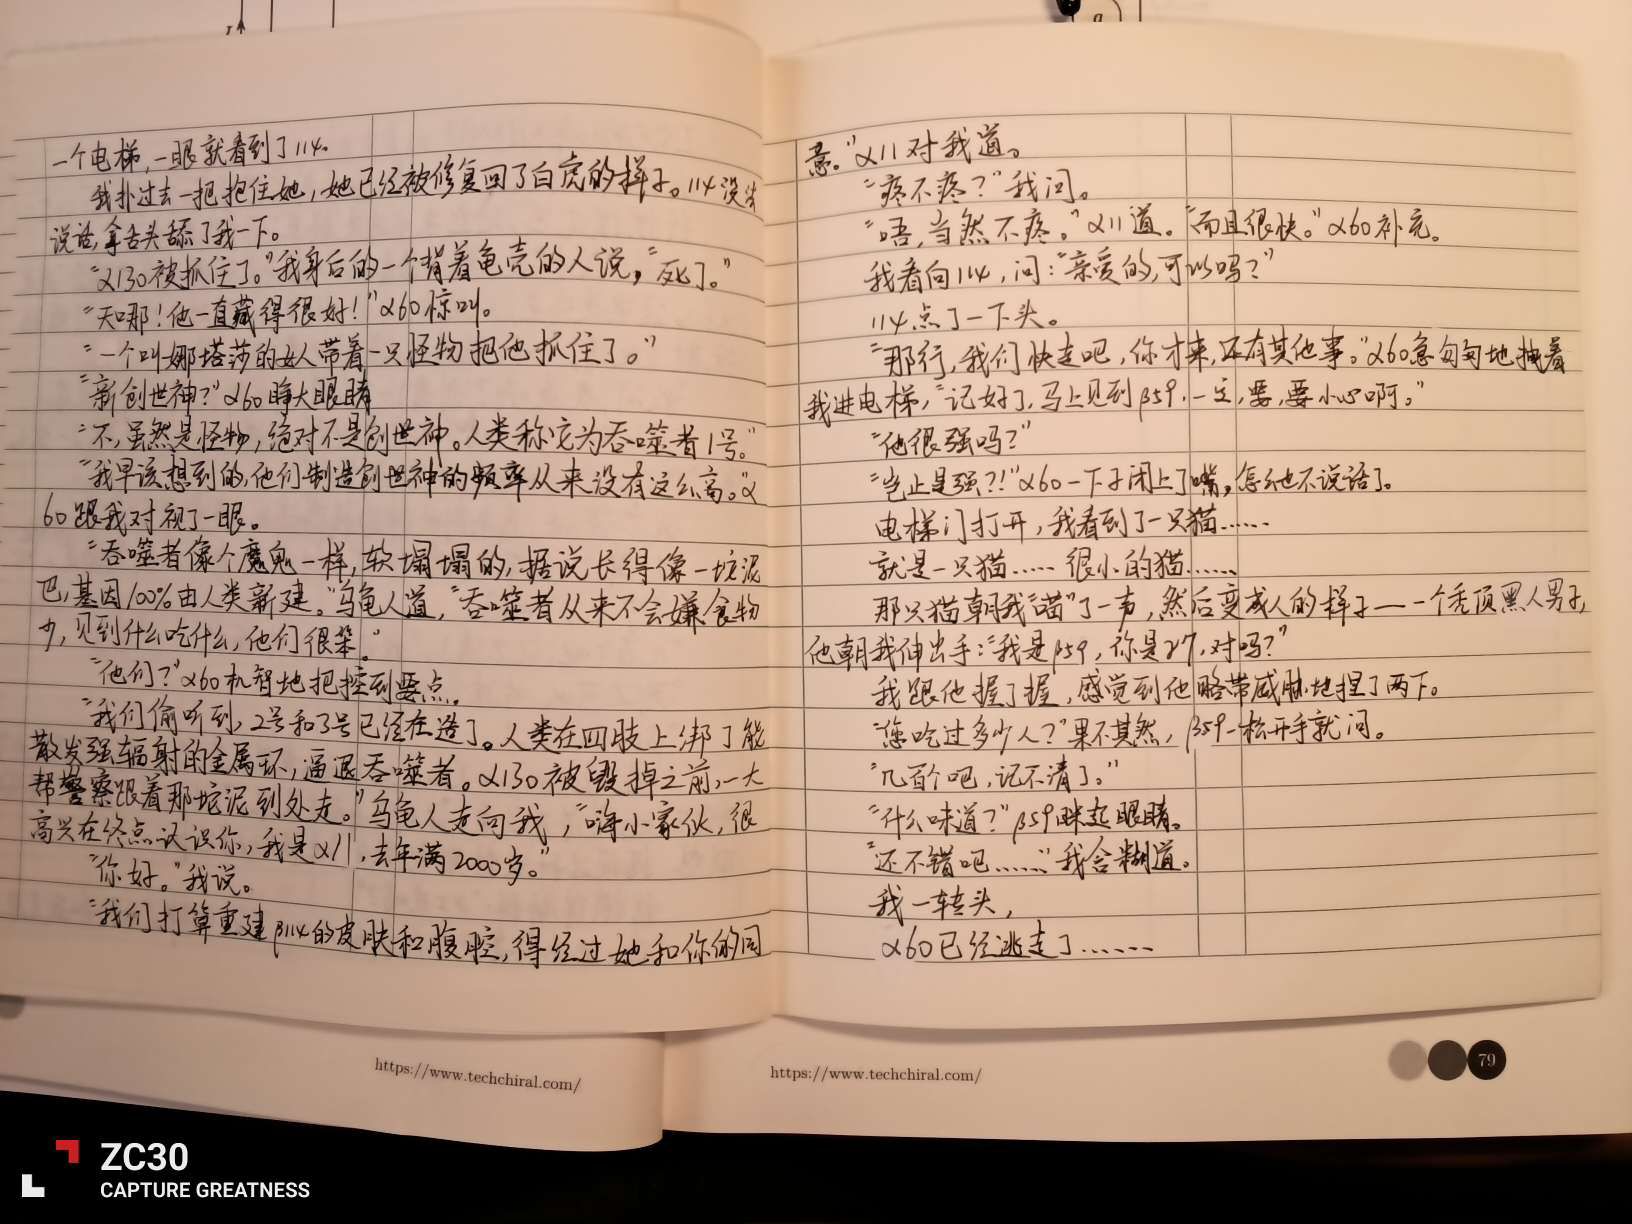 一个电梯，一眼就看到了114。
我扑过去一把抱住她，她已经被修复回了白虎的样子。114没
说话，拿舌头舔了我一下。
“α130被抓住了。”我身后的一个背着龟壳的人说，“死了。”
“天哪！他一直藏得很好！”α60惊叫。
“一个叫娜塔莎的女人带着一只怪物把他抓住了。”
“新创世神？”α60睁大眼睛
“不，虽然是怪物，绝对不是创世神。人类称它为吞噬者1号。”
“我早该想到的，他们制造创世神的频率从来没有这么高。”α
60跟我对视了一眼。
“吞噬者像个魔鬼一样，软塌塌的，据说长得像一坨泥
巴，基因100%由人类新建。”乌龟人道，“吞噬者从来不会嫌食物
少，见到什么吃什么，他们很笨。”
“他们？”α60机智地把控到要点。
“我们偷听到，2号和3号已经在造了。人类在四肢上绑了能
散发强辐射的金属环，逼退吞噬者。α130被毁掉之前，一大
帮警察跟着那坨泥到处走。”乌龟人走向我，“嗨小家伙，很
高兴在终点认识你，我是α11，去年满2000岁。”
“你好。”我说。
“我们打算重建β114的皮肤和腹腔，得经过她和你的同
意。”α11对我道。
“疼不疼？”我问。
“唔，当然不疼。”α11道。“而且很快。”α60补充。
我看向114，问：“亲爱的，可以吗？”
114点了一下头。
“那行，我们快走吧，你才来，还有其他事。”α60急匆匆地拽着
我进电梯，“记好了，马上见到β59，一定，要，要小心啊。”
“他很强吗？”
“岂止是强？！”α60一下子闭上了嘴，怎么也不说话了。
电梯门打开，我看到了一只猫……
就是一只猫……很小的猫……
那只猫朝我“喵”了一声，然后变成人的样子——一个秃顶黑人男子，
他朝我伸出手：“我是β59，你是γ7，对吗？”
我跟他握了握，感觉到他略带威胁地捏了两下。
“您吃过多少人？”果不其然，β59一松开手就问。
“几百个吧，记不清了。”
“什么味道？”β59眯起眼睛。
“还不错吧……”我含糊道。
我一转头，
α60已经逃走了……
https://www.techchiral.com/
https://www.techchiral.com/
79
ZC30
CAPTURE GREATNESS